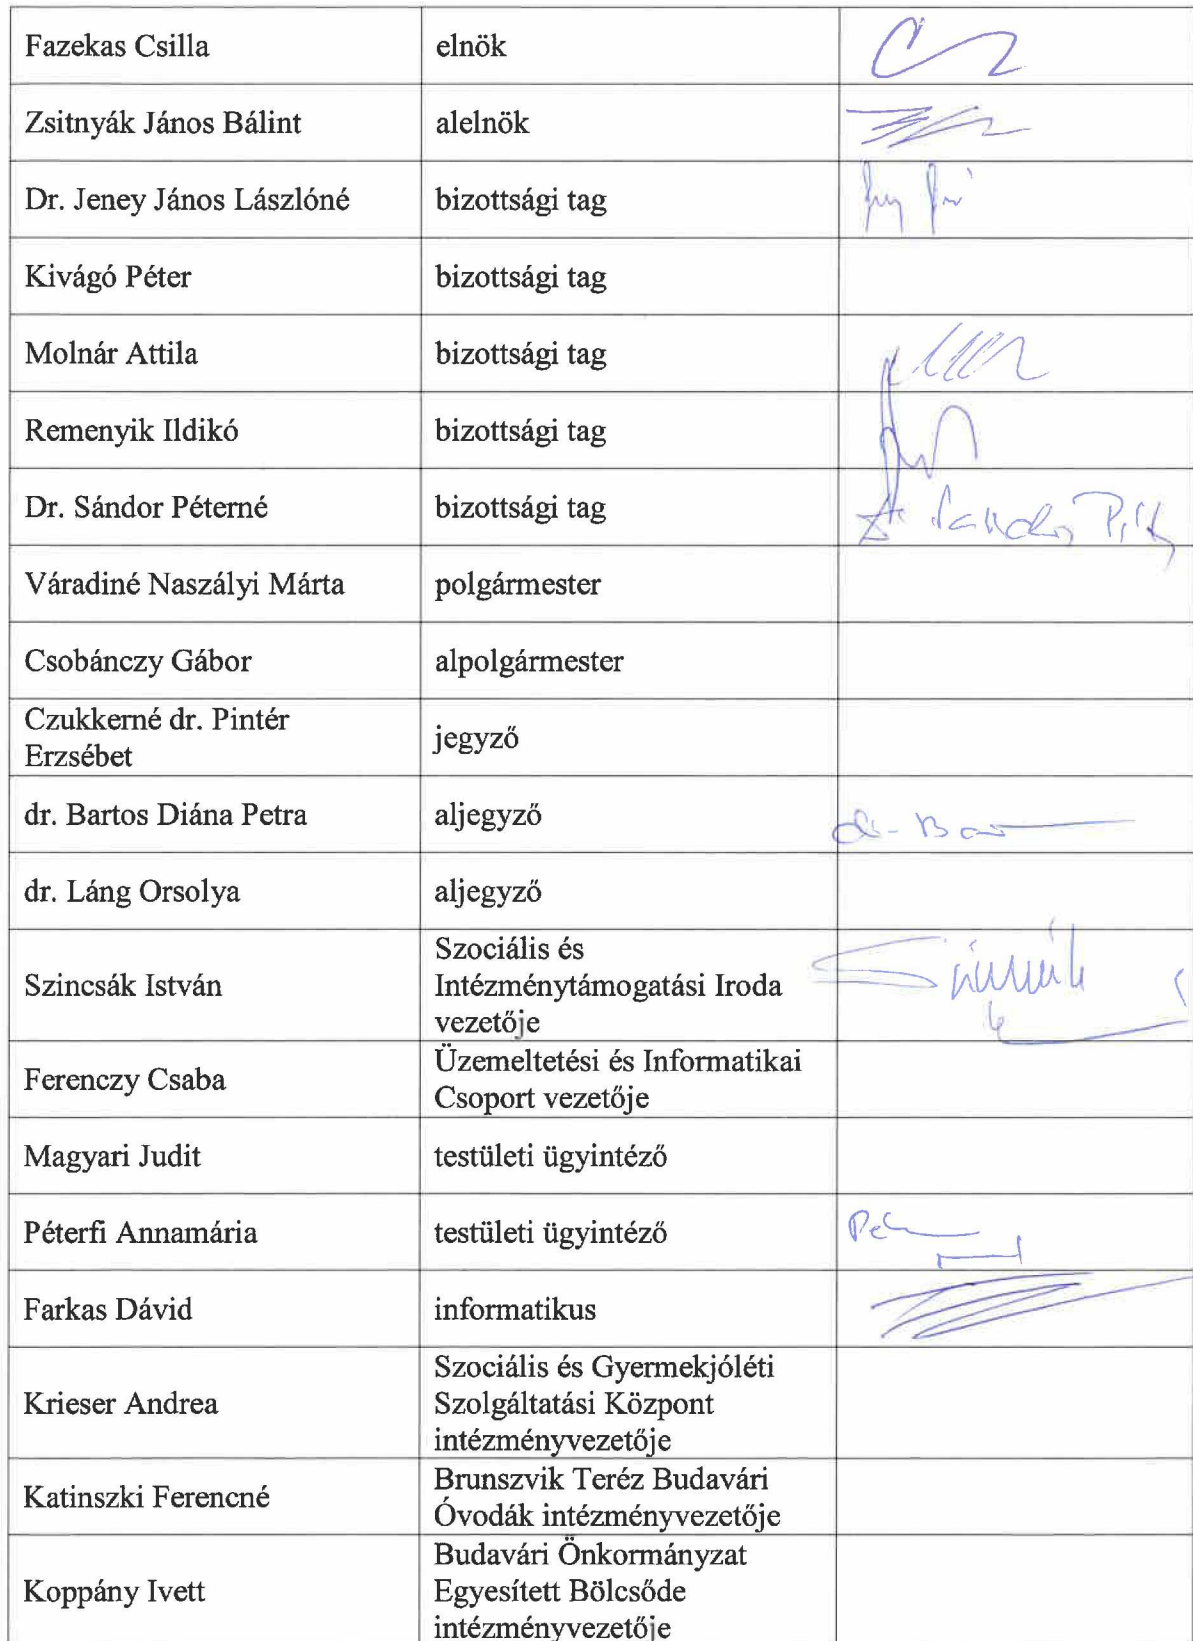 Fazekas Csilla
elnök
Zsitnyák János Bálint
alelnök
Dr. Jeney János Lászlóné
bizottsági tag
Kivágó Péter
bizottsági tag
Molnár Attila
bizottsági tag
Remenyik Ildikó
bizottsági tag
Dr. Sándor Péterné
bizottsági tag
Váradiné Naszályi Márta
polgármester
Csobánczy Gábor
alpolgármester
Czukkerné dr. Pintér
Erzsébet
jegyző
dr. Bartos Diána Petra
aljegyző
dr. Láng Orsolya
aljegyző
Szincsák István
Szociális és
Intézménytámogatási Iroda
vezetője
Ferenczy Csaba
Üzemeltetési és Informatikai
Csoport vezetője
Magyari Judit
testületi ügyintéző
Péterfi Annamária
testületi ügyintéző
Farkas Dávid
informatikus
Krieser Andrea
Szociális és Gyermekjóléti
Szolgáltatási Központ
intézményvezetője
Katinszki Ferencné
Brunszvik Teréz Budavári
Óvodák intézményvezetője
Koppány Ivett
Budavári Önkormányzat
Egyesített Bölcsőde
intézményvezetője